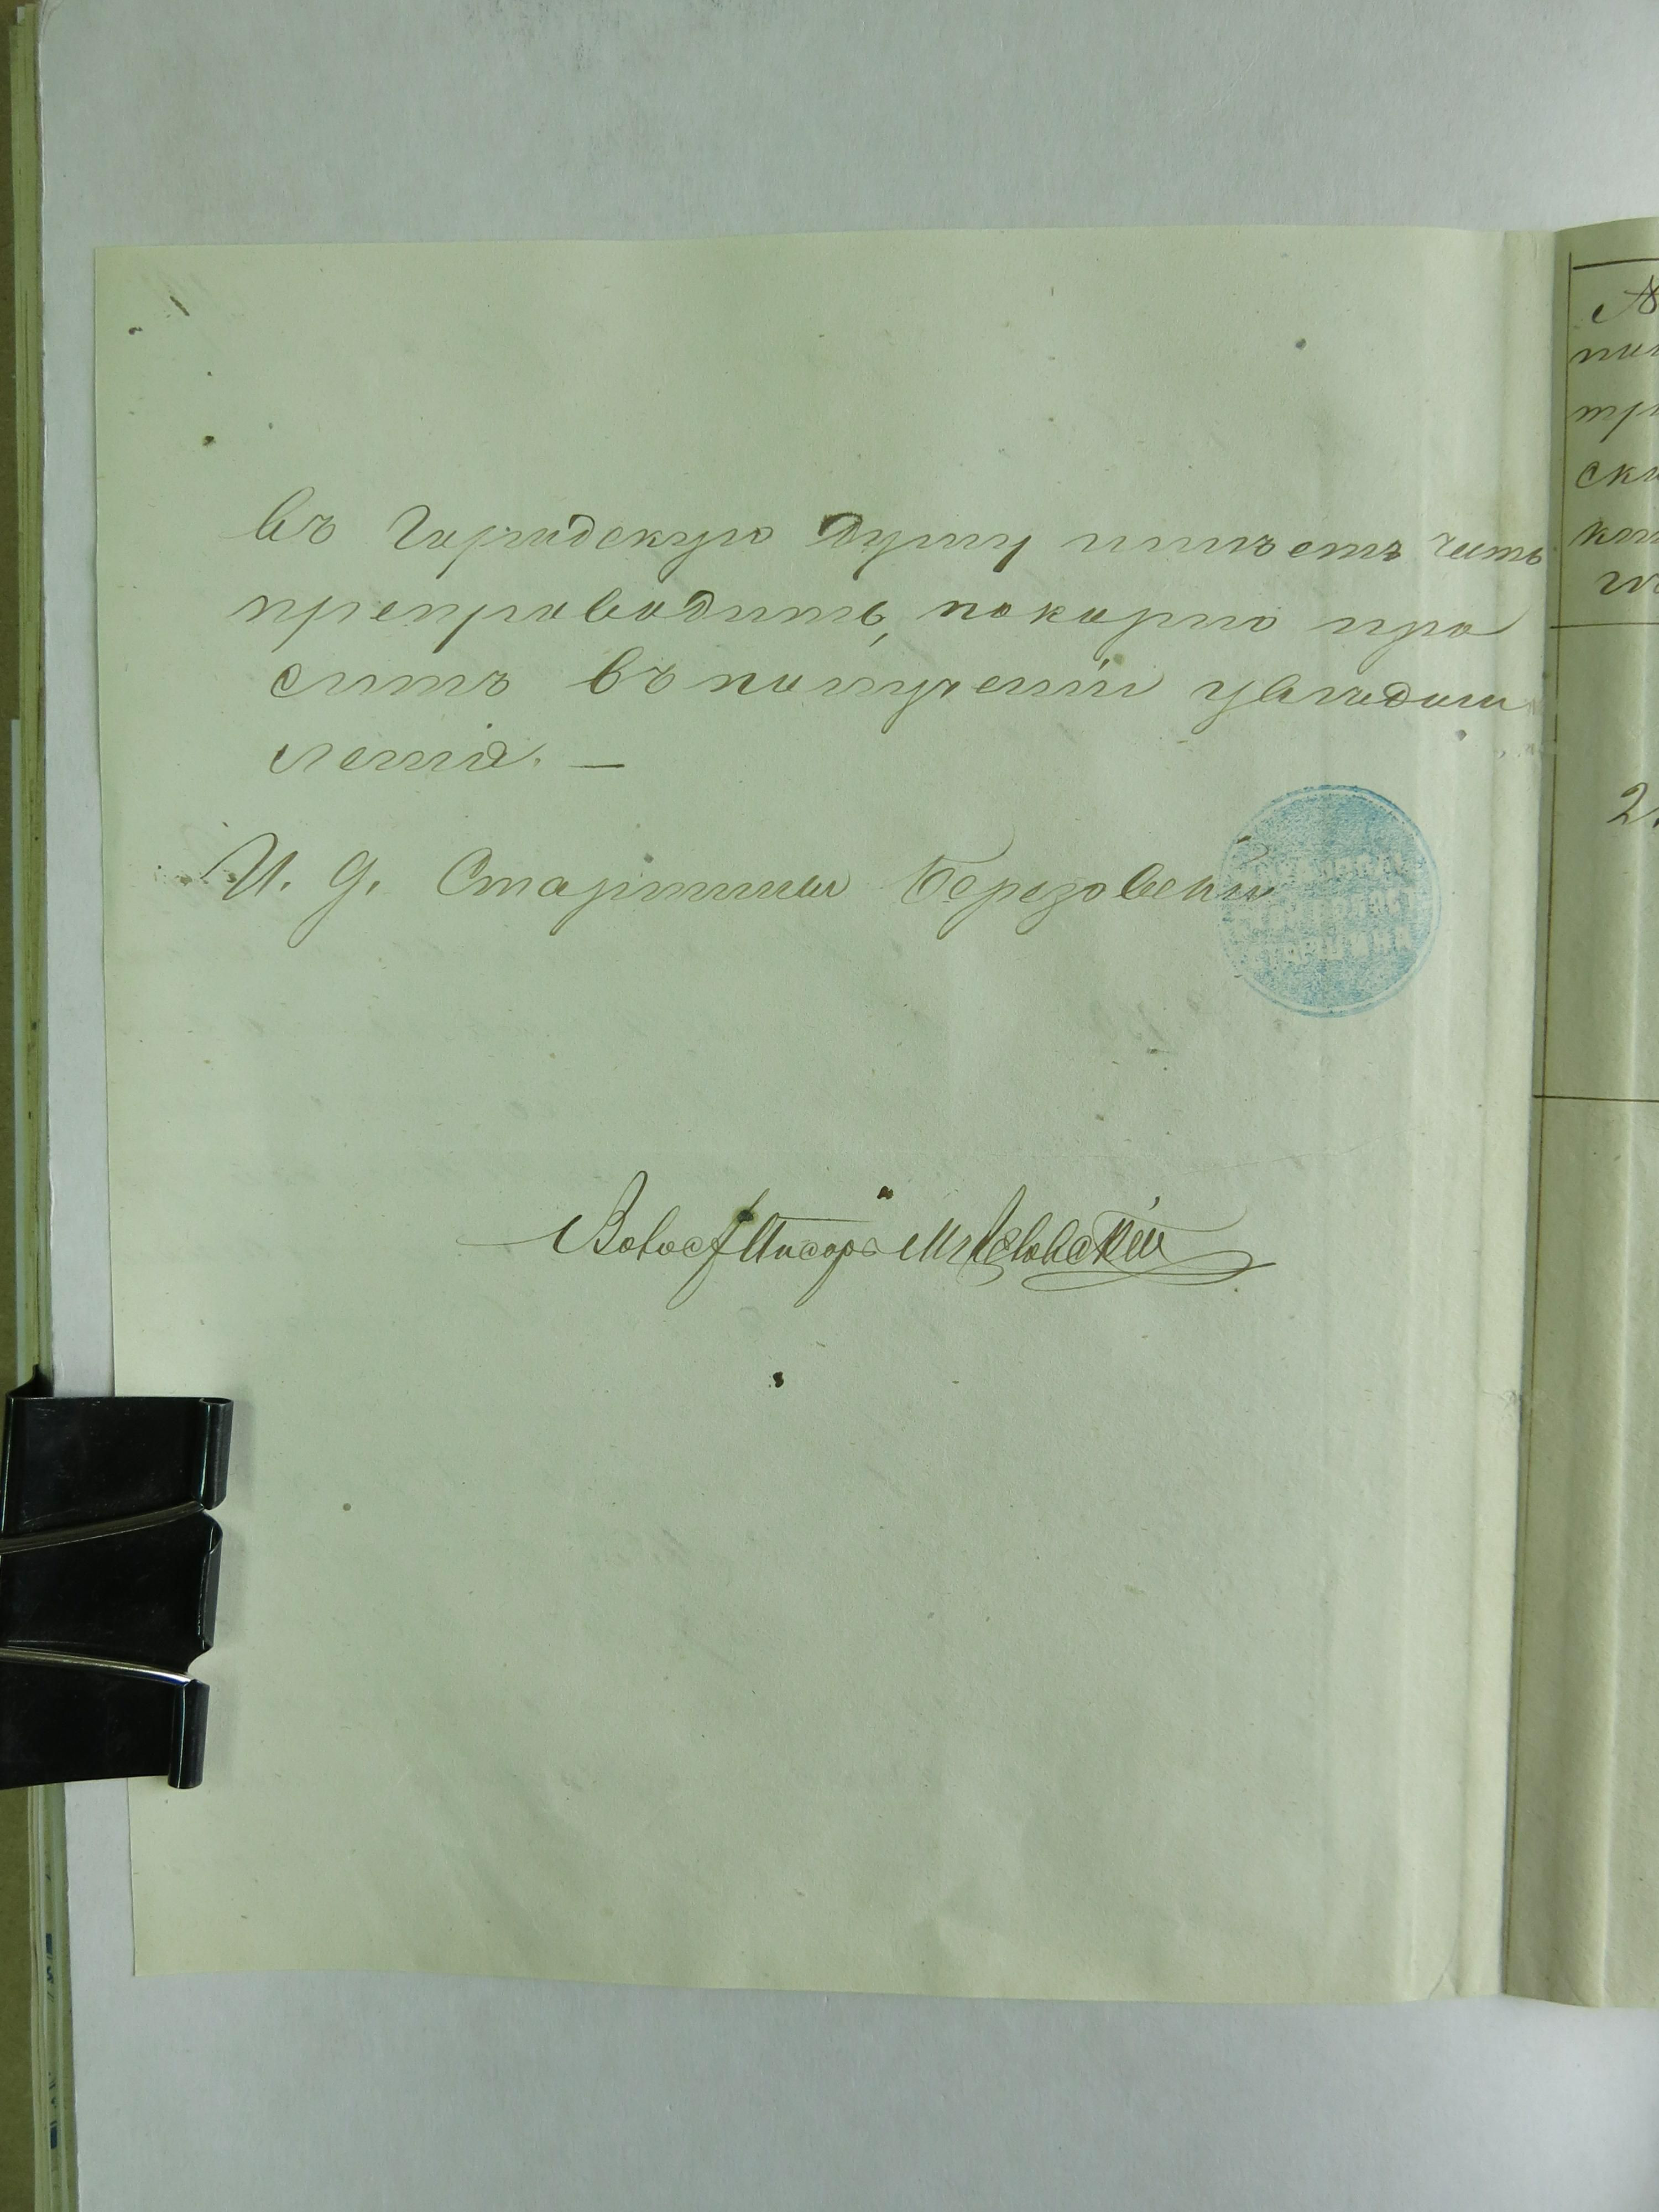 въ Городскую Думу имѣетъ честь
препроводить, покорно про
ситъ въ полученіи увѣдом
ленія. —
И. д. Старшины Березовскій
СТАРШИНА
Волост Писарь
2.